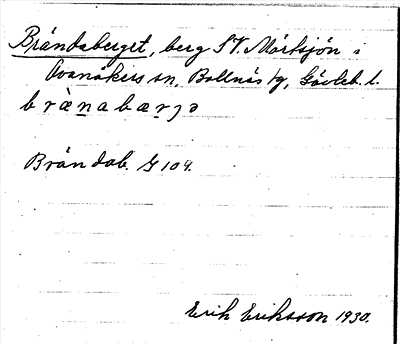 Brändaberget, berg SV. Mårtsjön i
Ovanåkers sn, Bollnäs tg, Gävleb. l.
brànabærjə
Brändab. G 104.
Erik Eriksson 1930.